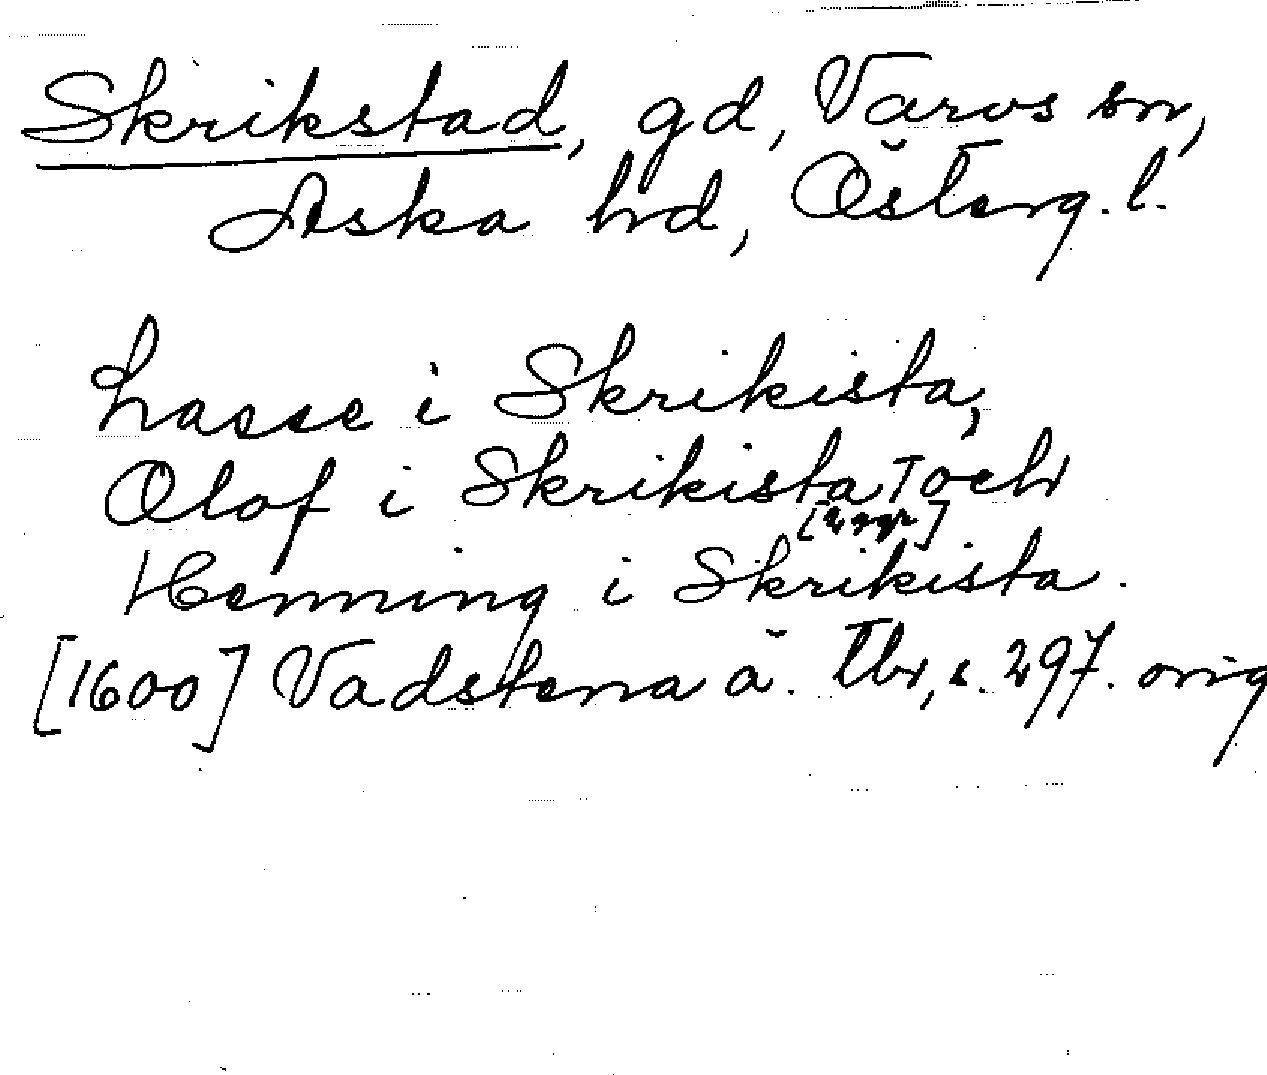 Skrikstad, gd, Varvs sn,
Aska hd, Österg. l.
Lasse i Skrikista,
Olof i Skrikista och
[2 ggr]
Henning i Skrikista.
[1600] Vadstena ä. Tb, s. 297. orig